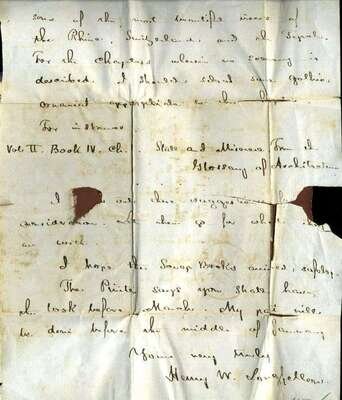 some of the most beautiful scenes of
the Rhine, Switzerland, and the
For the chapters wherein no scenery is
described, I should select some gothic
ornament appropriate to the
For instance
Vol. II. Book IV. Ch. and From the
Glossary of Architecture
I out these suggestions for
consideration. them go for what
worth.
I hope the Song Books arrived safely.
The Printer says you shall have
the book before March. My part will
be done before the middle of January
Yours very truly
Henry W. Longfellow.